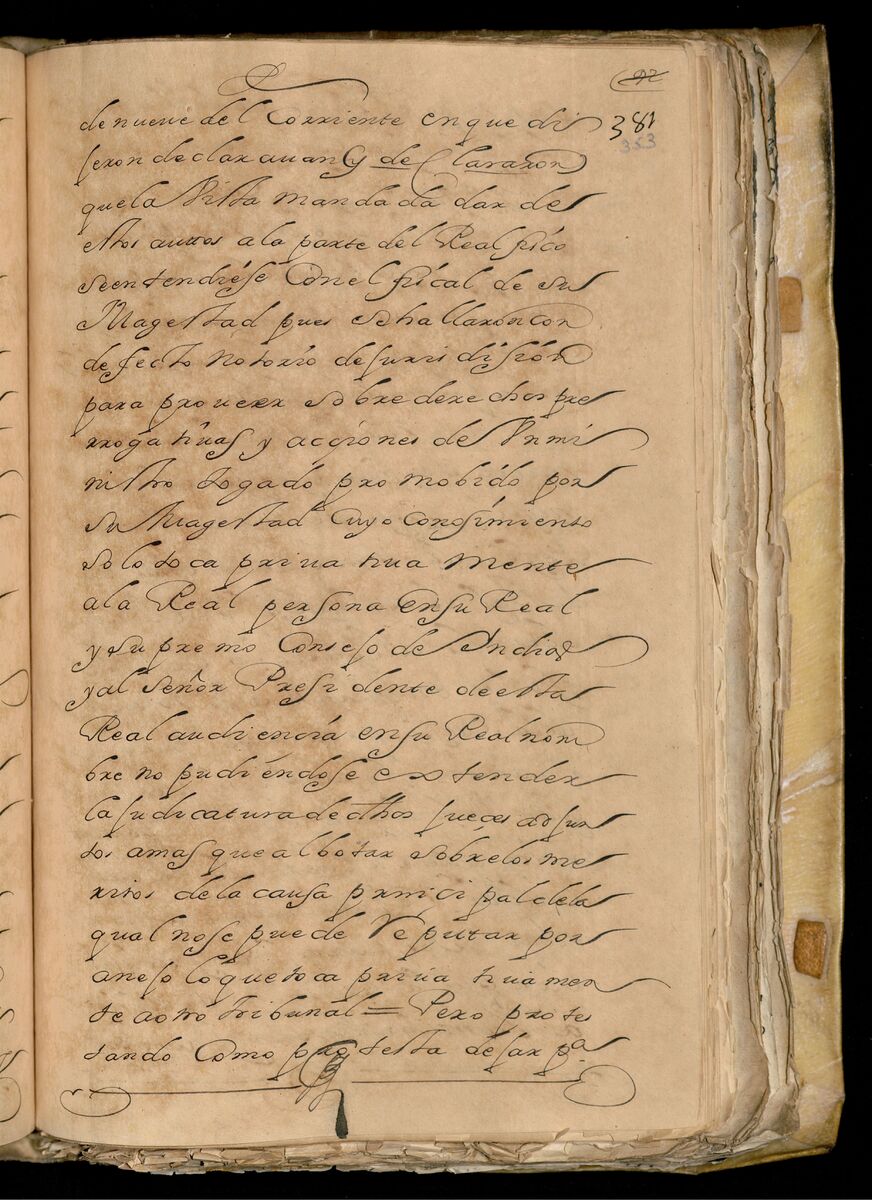 42
381
353
de nueve del Corriente en que di
jeron declarauan y declararon
que la Vista mandada dar de
estos auttos a la parte del Real fisco
se entendiese Con el fiscal de su
Magestad pues se hallaron con
defecto notorio de jurisdision
para proueer sobre derechos pre
rrogatiuas y acciones de Vn mi
nistro togado promobido por
su Magestad Cuyo Conosimiento
solo toca priuatiuamente
a la Real persona en su Real
y supremo Consejo de Indias
y al señor Presidente de esta
Real audiencia en su Real nom
bre no pudiendose extender
la judicatura de dhos jueces adjun
tos a mas que al botar sobre los me
ritos de la causa prinicipal de la
qual no se puede Reputar por
anejo lo que toca priuatiuamen
te a otro tribunal = Pero protes
tando Como protesta dejar pa